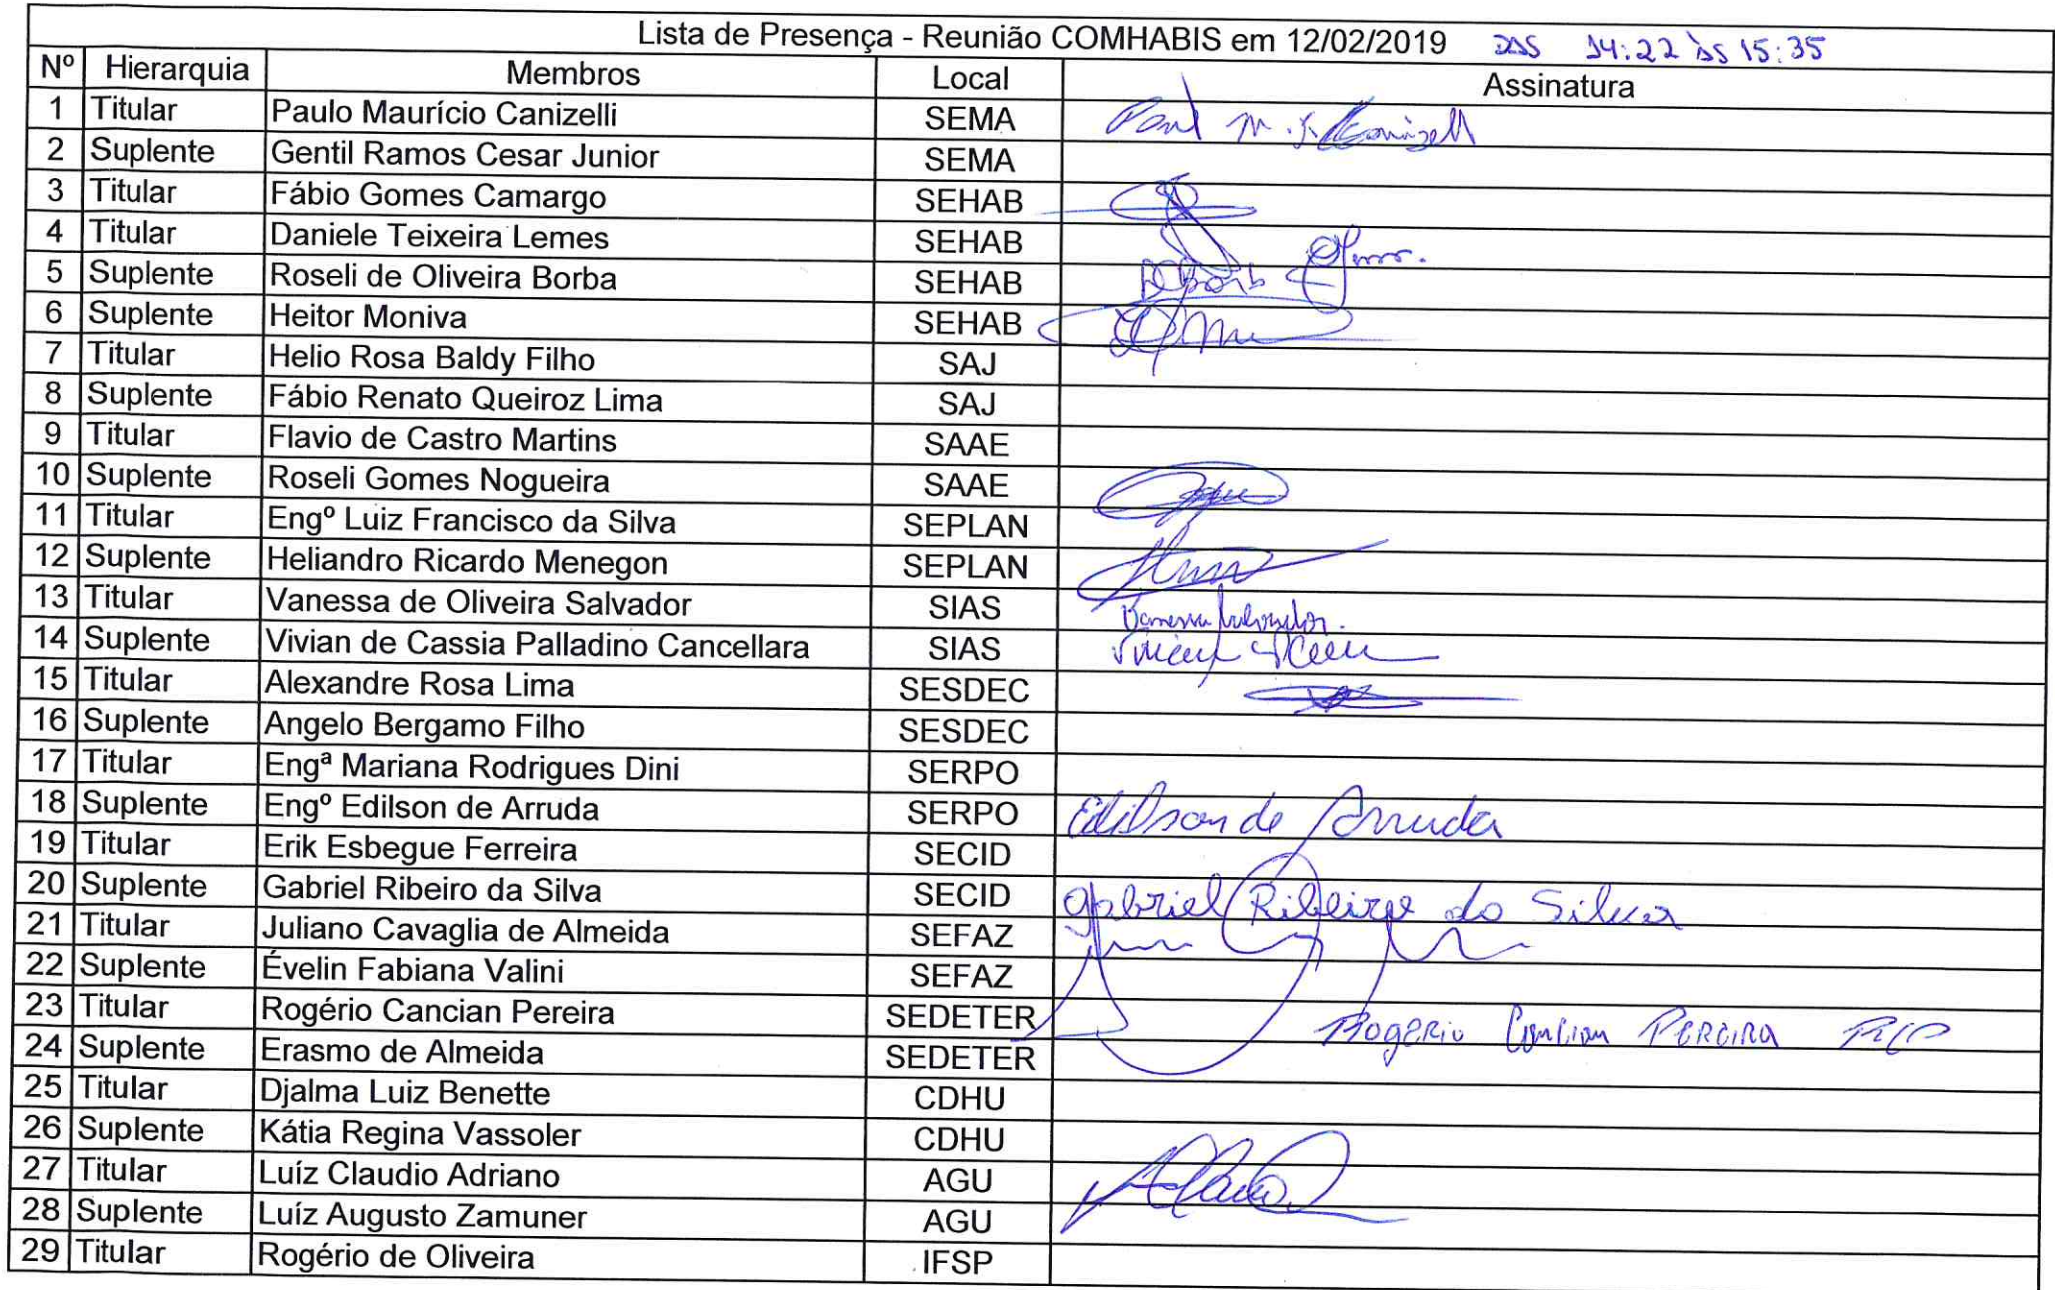 Lista de Presença - Reunião COMHABIS em 12/02/2019 DAS 14:22 às 15:35
Nº Hierarquia Membros Local Assinatura
1 Titular Paulo Maurício Canizelli SEMA
2 Suplente Gentil Ramos Cesar Junior SEMA
3 Titular Fábio Gomes Camargo SEHAB
4 Titular Daniele Teixeira Lemes SEHAB
5 Suplente Roseli de Oliveira Borba SEHAB
6 Suplente Heitor Moniva SEHAB
7 Titular Helio Rosa Baldy Filho SAJ
8 Suplente Fábio Renato Queiroz Lima SAJ
9 Titular Flavio de Castro Martins SAAE
10 Suplente Roseli Gomes Nogueira SAAE
11 Titular Engº Luiz Francisco da Silva SEPLAN
12 Suplente Heliandro Ricardo Menegon SEPLAN
13 Titular Vanessa de Oliveira Salvador SIAS Vanessa Salvador.
14 Suplente Vivian de Cassia Palladino Cancellara SIAS
15 Titular Alexandre Rosa Lima SESDEC
16 Suplente Angelo Bergamo Filho SESDEC
17 Titular Engª Mariana Rodrigues Dini SERPO
18 Suplente Engº Edilson de Arruda SERPO Edilson de Arruda
19 Titular Erik Esbegue Ferreira SECID
20 Suplente Gabriel Ribeiro da Silva SECID Gabriel Ribeiro da Silva
21 Titular Juliano Cavaglia de Almeida SEFAZ
22 Suplente Évelin Fabiana Valini SEFAZ
23 Titular Rogério Cancian Pereira SEDETER Rogério Cancian Pereira RCP
24 Suplente Erasmo de Almeida SEDETER
25 Titular Djalma Luiz Benette CDHU
26 Suplente Kátia Regina Vassoler CDHU
27 Titular Luíz Claudio Adriano AGU
28 Suplente Luíz Augusto Zamuner AGU
29 Titular Rogério de Oliveira IFSP